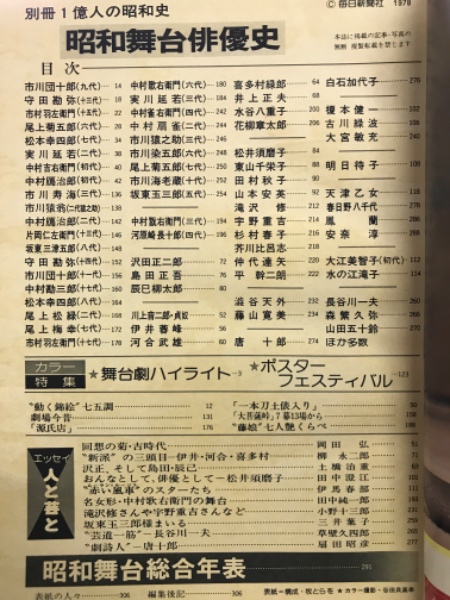 別冊1億人の昭和史
© 毎日新聞社 1979
昭和舞台俳優史
本誌に掲載の記事・写真の
無断複製転載を禁じます
目次
市川団十郎(九代) 14
守田勘弥(十三代) 18
市村羽左衛門(十五代) 22
尾上菊五郎(六代) 28
松本幸四郎(七代) 34
実川延若(二代) 38
中村吉右衛門(初代) 40
中村鴈治郎(初代) 42
市川寿海(三代) 136
市川猿翁(二代猿之助) 138
中村鴈治郎(二代) 142
片岡仁左衛門(十三代) 146
坂東三津五郎(八代) 148
守田勘弥(十四代) 152
市川団十郎(十一代) 156
中村勘三郎(十七代) 160
松本幸四郎(八代) 164
尾上松緑(二代) 168
尾上梅幸(七代) 172
市村羽左衛門(十七代) 178
中村歌右衛門(六代) 180
実川延若(三代) 184
中村雀右衛門(四代) 242
中村扇雀(二代) 244
市川猿之助(三代) 246
市川染五郎(六代) 248
尾上菊五郎(七代) 250
市川海老蔵(十代) 252
坂東玉三郎(五代) 254
中村翫右衛門(三代) 194
河原崎長十郎(四代) 196
沢田正二郎 72
島田正吾 76
辰巳柳太郎 80
川上音二郎・貞奴 52
伊井蓉峰 56
河合武雄 60
喜多村緑郎 64
井上正夫 68
水谷八重子 200
花柳章太郎 206
松井須磨子 84
東山千栄子 88
田村秋子 90
山本安英
滝沢修 212
宇野重吉 214
杉村春子 216
芥川比呂志 218
仲代達矢 220
平幹二朗 222
渋谷天外 232
藤山寛美 234
唐十郎 274
白石加代子 276
榎本健一 102
古川緑波 106
大宮敏充 240
明日待子 108
天津乙女 118
春日野八千代 278
鳳蘭 286
安奈淳 288
大江美智子(初代) 112
水の江滝子 114
長谷川一夫 260
森繁久弥 266
山田五十鈴 270
ほか多数
カラー特集
★舞台劇ハイライト 3
★ポスターフェスティバル 123
“動く錦絵”七五調 12
劇場今昔 131
「源氏店」 176
「一本刀土俵入り」 50
「大菩薩峠」7幕13場から 150
“藤娘”七人艶くらべ 188
エッセイ
人と芸と
回想の菊・吉時代 岡田弘 51
“新派”の三頭目―伊井・河合・喜多村 柳永二郎 71
沢正、そして島田・辰己 土橋治重 83
おんなとして、俳優として―松井須磨子 田中澄江 101
“赤い風車”のスターたち 伊馬春部
名女形・中村歌右衛門の舞台 田中純一郎 193
滝沢修さんや宇野重吉さんなど 小野十三郎 231
坂東玉三郎様まいる 三井葉子 259
“芸道一筋”―長谷川一夫 草壁久四郎 265
“劇詩人”―唐十郎 扇田昭彦 277
昭和舞台総合年表 291
表紙の人々 306
編集後記 306
表紙=構成・板とらを ★カラー撮影・谷田貝高幸